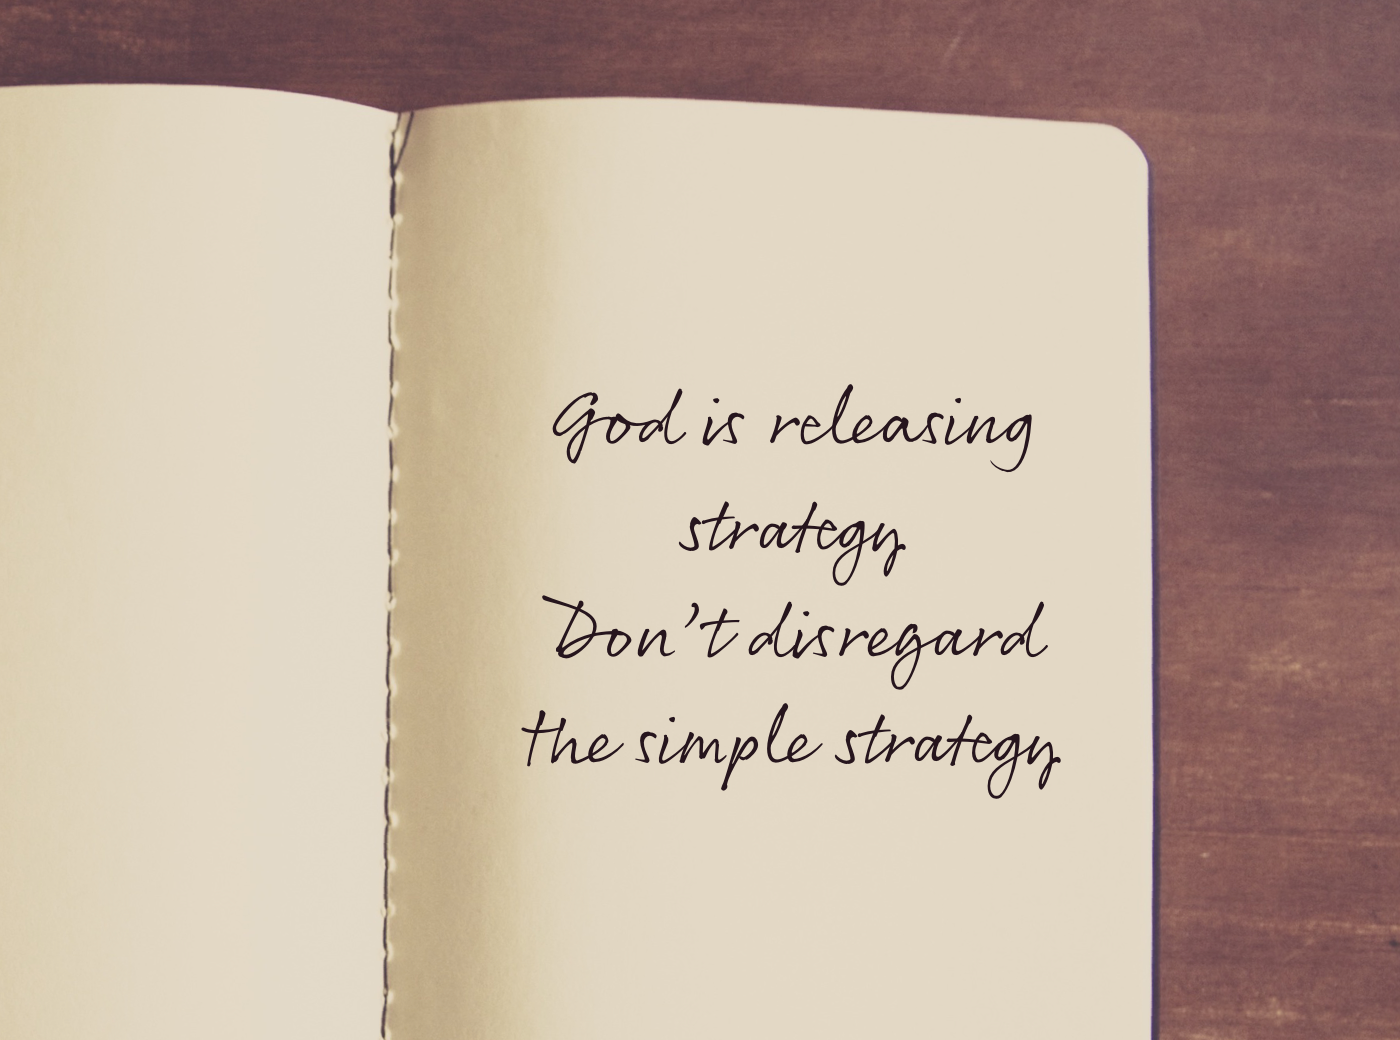 God is releasing
strategy
Don't disregard
the simple strategy